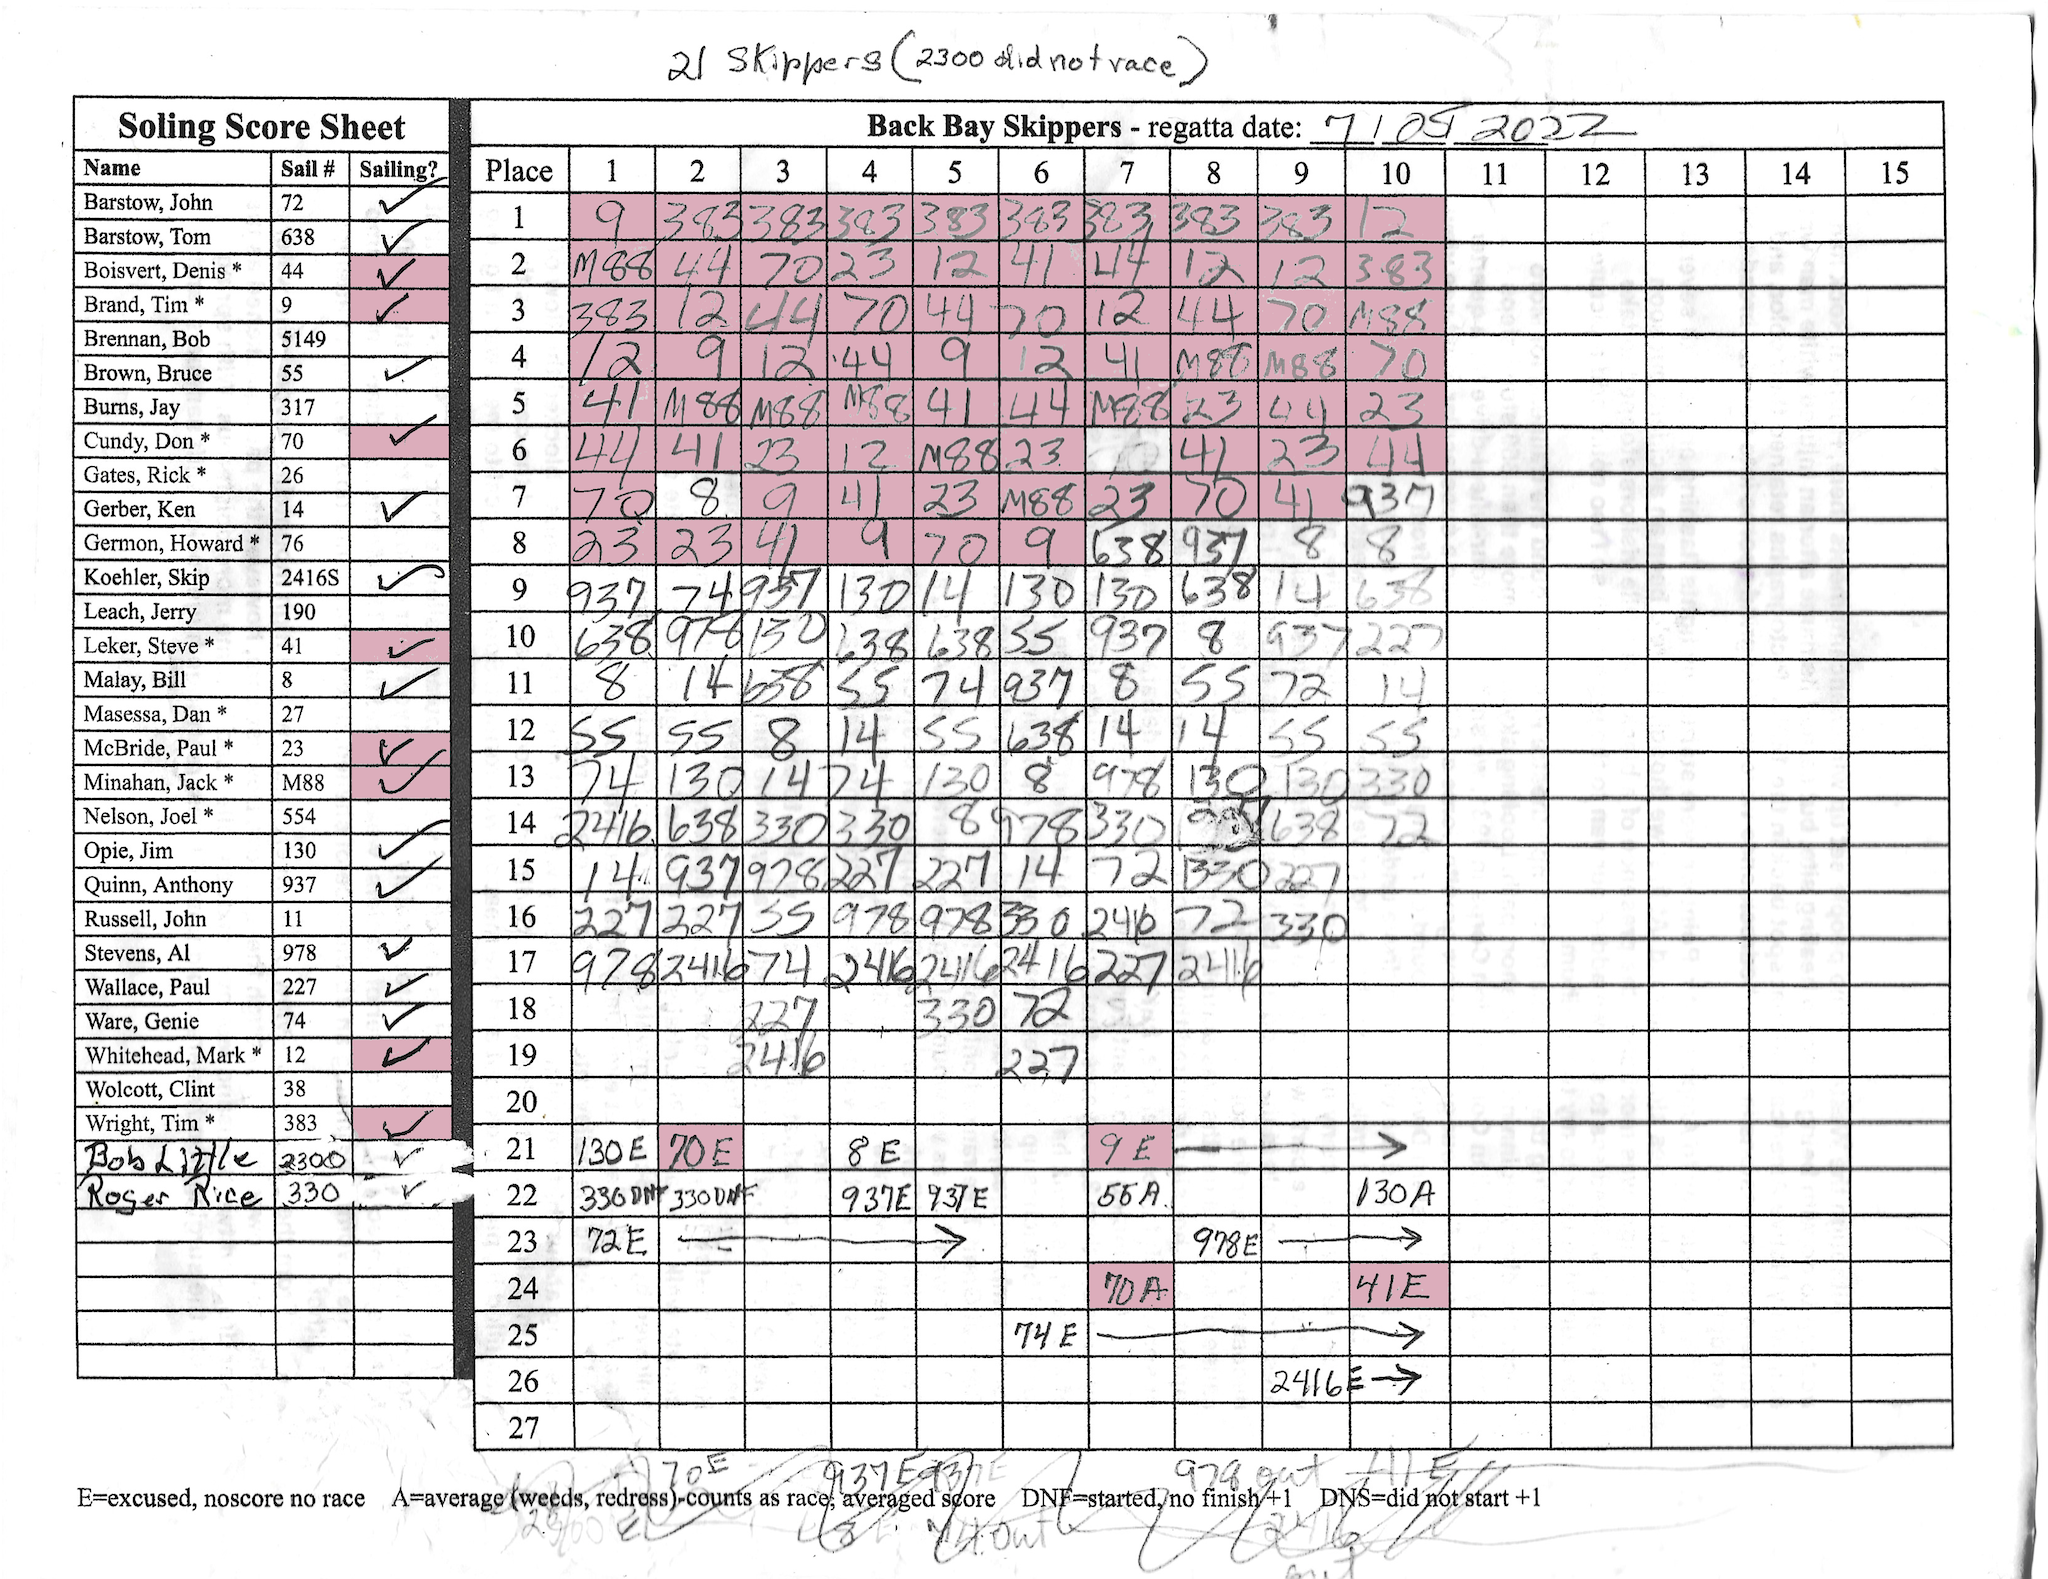 21 Skippers (2300 did not race)
Soling Score Sheet
Back Bay Skippers - regatta date: 7/05/2022
Name Sail # Sailing?
Place 1 2 3 4 5 6 7 8 9 10 11 12 13 14 15
Barstow, John 72 ✓
Barstow, Tom 638 ✓
Boisvert, Denis * 44 ✓
Brand, Tim * 9 ✓
Brennan, Bob 5149
Brown, Bruce 55 ✓
Burns, Jay 317
Cundy, Don * 70 ✓
Gates, Rick * 26
Gerber, Ken 14 ✓
Germon, Howard * 76
Koehler, Skip 2416S ✓
Leach, Jerry 190
Leker, Steve * 41 ✓
Malay, Bill 8 ✓
Masessa, Dan * 27
McBride, Paul * 23 ✓
Minahan, Jack * M88 ✓
Nelson, Joel * 554
Opie, Jim 130 ✓
Quinn, Anthony 937 ✓
Russell, John 11
Stevens, Al 978 ✓
Wallace, Paul 227 ✓
Ware, Genie 74 ✓
Whitehead, Mark * 12 ✓
Wolcott, Clint 38
Wright, Tim * 383 ✓
Bob Little 2300 ✓
Roger Rice 330 ✓
1 9 383 383 383 383 383 383 383 383 12
2 M88 44 70 23 12 41 44 12 12 383
3 383 12 44 70 44 70 12 44 70 M88
4 12 9 12 44 9 12 41 M88 M88 70
5 41 M88 M88 M88 41 44 M88 23 44 23
6 44 41 23 12 M88 23 41 23 44
7 70 8 9 41 23 M88 23 70 41 937
8 23 23 41 9 70 9 638 937 8 8
9 937 74 937 130 14 130 130 638 14 638
10 638 978 130 638 638 55 937 8 937 227
11 8 14 638 55 74 937 8 55 72 14
12 55 55 8 14 55 638 14 14 55 55
13 74 130 14 74 130 8 978 130 130 330
14 2416 638 330 330 8 978 330 638 72
15 14 937 978 227 227 14 72 330 227
16 227 227 55 978 978 330 2416 72 330
17 978 2416 74 2416 2416 2416 227 2416
18 227 330 72
19 2416 227
20
21 130 E 70 E 8 E 9 E →
22 330 DNF 330 DNF 937 E 937 E 55 A 130 A
23 72 E → 978 E →
24 70 A 41 E
25 74 E →
26 2416 E →
27
70 E 937 E 937 E 978 out 41 E
E=excused, noscore no race A=average (weeds, redress)-counts as race, averaged score DNF=started, no finish +1 DNS=did not start +1
2300 E 8 E 74 Out 2416
out